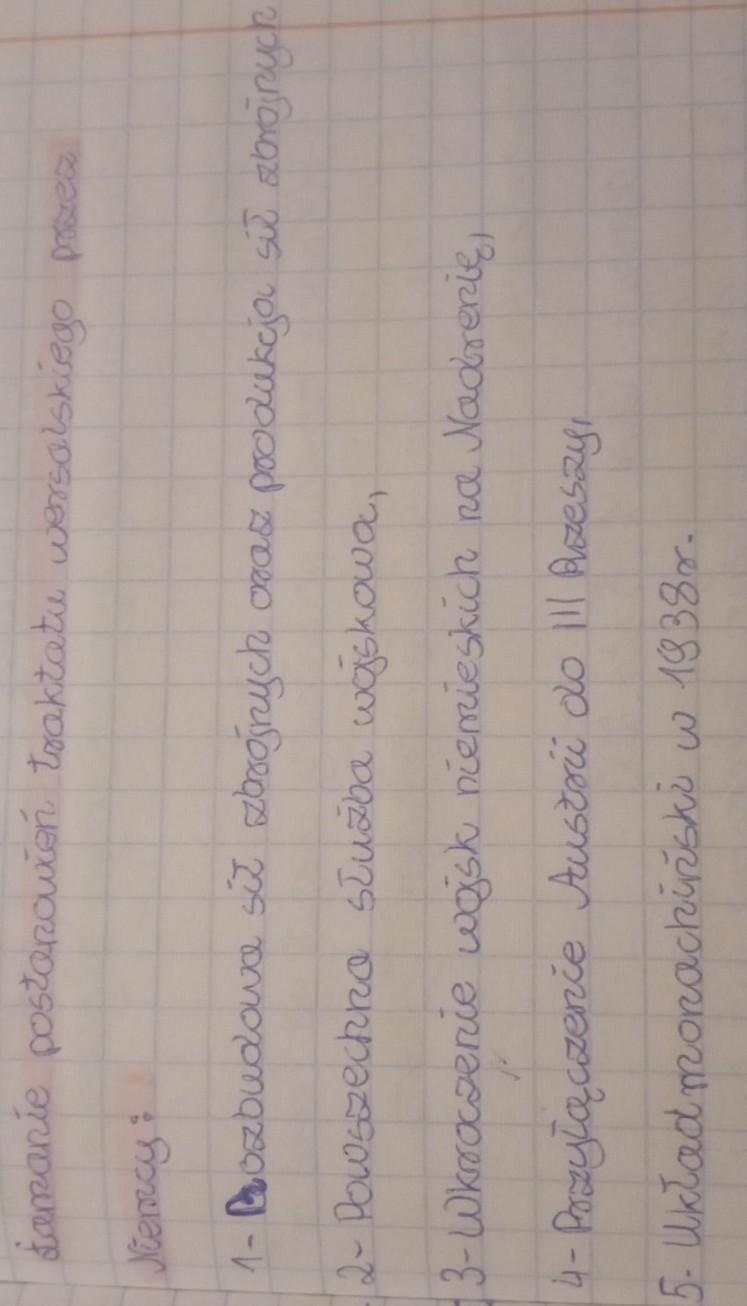 Łamanie postanowień traktatu wersalskiego przez
Niemcy:
1- Rozbudowa sił zbrojnych oraz produkcja sił zbrojnych
2- Powszechna służba wojskowa,
3- Wkroczenie wojsk niemieskich na Nadrenię,
4- Przyłączenie Austrii do III Rzeszy,
5. Układ monachiński w 1938r.